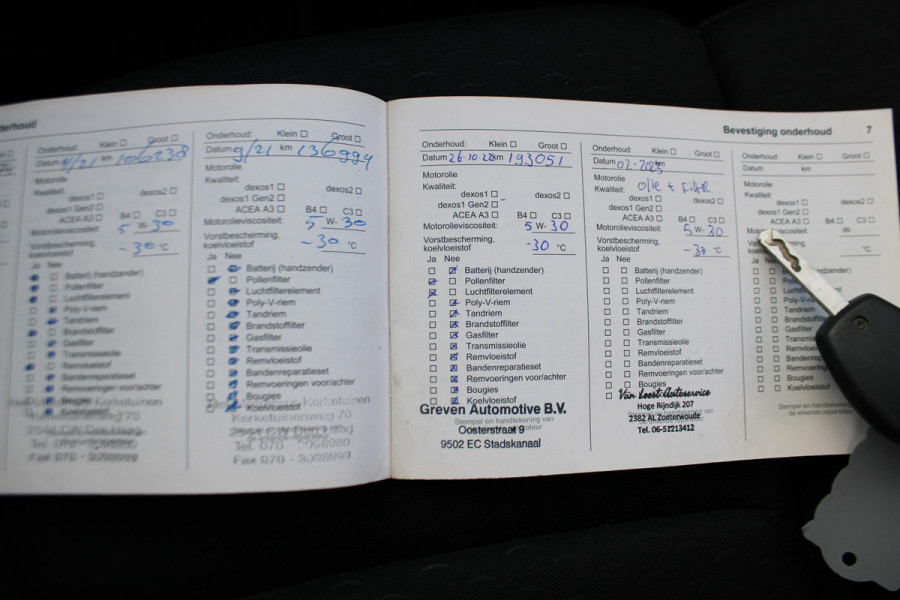 derhoud
Datum 4/21 km 106238
Klein ☐ Groot ☐
Motorolie
Kwaliteit:
dexos1 ☐ dexos2 ☐
dexos1 Gen2 ☐
ACEA A3 ☐ B4 ☐ C3 ☐
Motorolieviscositeit: 5 W-30
Vorstbescherming,
koelvloeistof -30 °C
Ja Nee
Batterij (handzender)
Pollenfilter
Luchtfilterelement
Poly-V-riem
Tandriem
Brandstoffilter
Gasfilter
Transmissieolie
Remvloeistof
Bandenreparatieset
Remvoeringen voor/achter
Bougies
Koelvloeistof
Onderhoud: Klein ☐ Groot ☐
Datum 9/21 km 136994
Motorolie
Kwaliteit:
dexos1 ☐ dexos2 ☐
dexos1 Gen2 ☐
ACEA A3 ☐ B4 ☐ C3 ☐
Motorolieviscositeit: 5 W-30
Vorstbescherming,
koelvloeistof -30 °C
Ja Nee
Batterij (handzender)
Pollenfilter
Luchtfilterelement
Poly-V-riem
Tandriem
Brandstoffilter
Gasfilter
Transmissieolie
Remvloeistof
Bandenreparatieset
Remvoeringen voor/achter
Bougies
Koelvloeistof
Kerketuinen
Kerketuinenweg 70
2544 CW Den Haag
Bevestiging onderhoud 7
Onderhoud: Klein ☐ Groot ☐
Datum 26-10-22 km 193051
Motorolie
Kwaliteit:
dexos1 ☐ dexos2 ☐
dexos1 Gen2 ☐
ACEA A3 ☐ B4 ☐ C3 ☐
Motorolieviscositeit: 5 W-30
Vorstbescherming,
koelvloeistof -30 °C
Ja Nee
Batterij (handzender)
Pollenfilter
Luchtfilterelement
Poly-V-riem
Tandriem
Brandstoffilter
Gasfilter
Transmissieolie
Remvloeistof
Bandenreparatieset
Remvoeringen voor/achter
Bougies
Koelvloeistof
Greven Automotive B.V.
Stempel en handtekening van
Oosterstraat 9
9502 EC Stadskanaal
Onderhoud: Klein ☐ Groot ☐
Datum 02-2023 km
Motorolie
Kwaliteit: olie + Filter
dexos1 ☐ dexos2 ☐
dexos1 Gen2 ☐
ACEA A3 ☐ B4 ☐ C3 ☐
Motorolieviscositeit: 5 W-30
Vorstbescherming,
koelvloeistof -30 °C
Ja Nee
Batterij (handzender)
Pollenfilter
Luchtfilterelement
Poly-V-riem
Tandriem
Brandstoffilter
Gasfilter
Transmissieolie
Remvloeistof
Bandenreparatieset
Remvoeringen voor/achter
Bougies
Van Leest Autoservice
Hoge Rijndijk 207
2382 AL Zoeterwoude
Tel. 06-51213412
Onderhoud: Klein ☐ Groot ☐
Datum km
Motorolie
Kwaliteit:
dexos1 ☐ dexos2 ☐
dexos1 Gen2 ☐
ACEA A3 ☐ B4 ☐ C3 ☐
W-
°C
Ja
Batterij (handzender)
Pollenfilter
Luchtfilterelement
Poly-V-riem
Tandriem
Gasfilter
Bougies
Koelvloeistof
Stempel en handtekening van
de erkende reparateur